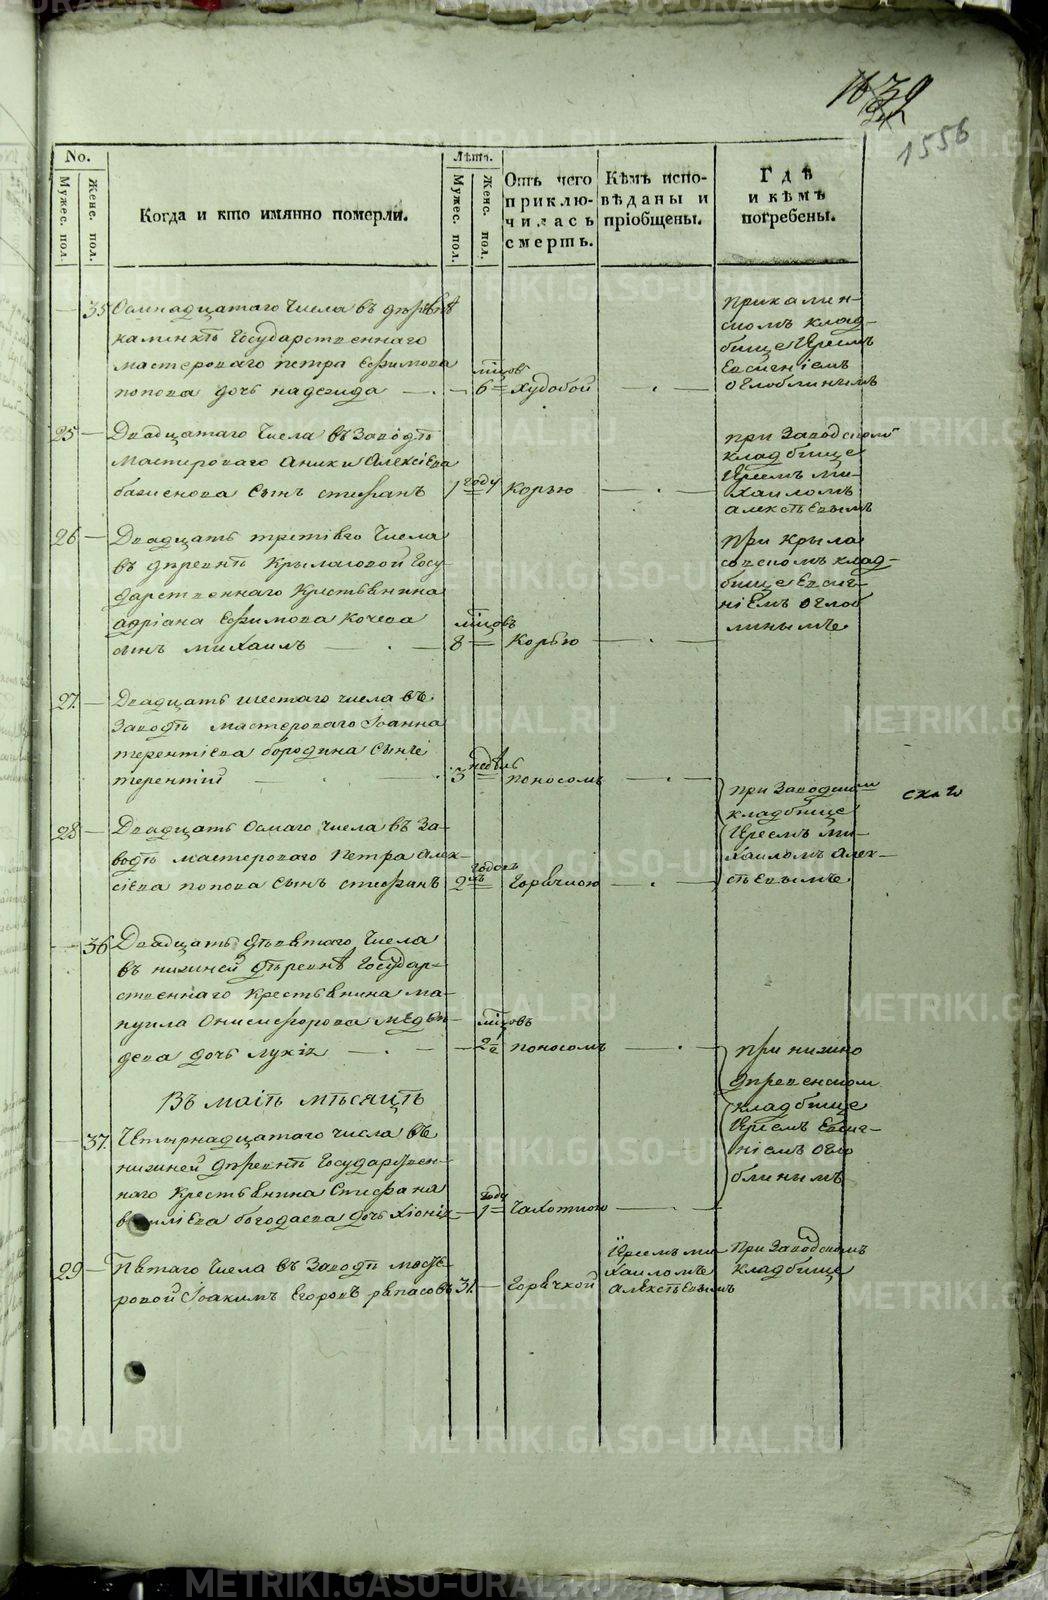 1556
No.
Мужес. пол.
Женс. пол.
Когда и кто имянно померли.
Лѣтъ.
Мужес. пол.
Женс. пол.
Отъ чего
приклю-
чилась
смерть.
Кѣмъ испо-
вѣданы и
пріобщены.
Гдѣ
и кѣмъ
погребены.
35 Осмнадцатаго Числа въ деревнѣ
каменкѣ Государственнаго
мастероваго петра Ефимова
попова дочь надежда
мѣцов
6 Худобой
при камен-
скомъ клад-
бище Іереемъ
Евсигніемъ
оглоблинымъ
25 Двадцатаго Числа въ Заводѣ
Мастероваго Аники Алексіева
баженова Сынъ стефанъ
1 году Корью
при Заводскомъ
кладбище
Іереемъ Ми-
хаиломъ
алексѣевымъ
26 Двадцать третіяго Числа
въ деревнѣ Крыласовой Госу-
дарственнаго Крестьянина
адріана Ефимова Кочева
сынъ михаилъ
мѣцовъ
8 Корью
при Крыла
совскомъ клад-
бище Евсиг-
ніемъ оглоб
линымъ
27. Двадцать шестаго числа въ
Заводѣ мастероваго Іоанна
терентіева бородина Сынъ
терентій
3 недѣль
поносомъ
28 Двадцать Осмаго числа въ За-
водѣ мастероваго Петра Алек-
сіева попова Сынъ стефанъ
2 годовъ
Горячкою
при Заводском
кладбище
Іереемъ Ми-
хаиломъ Алек-
сѣевымъ
36 Двадцать девятаго Числа
въ нижней деревнѣ Государ-
ственнаго Крестьянина ма-
нуила Онисифорова медвѣ-
дева дочь лукія
мѣцовъ
2 поносомъ
Въ маіѣ мѣсяцѣ
37. Четырнадцатаго числа въ
нижней деревнѣ Государствен-
наго Крестьянина Стефана
василіева богодаева дочь Хіонія
1 году
Чахоткою
при нижно
деревенском
кладбище
Іереемъ Евсиг-
ніемъ огло
блинымъ
29 Пятаго Числа въ Заводѣ масте-
ровой Іоакимъ Егоровъ
31. Горячкой
Іереемъ ми
хаиломъ
алексѣевымъ
При Заводскомъ
кладбище
METRIKI.GASO-URAL.RU